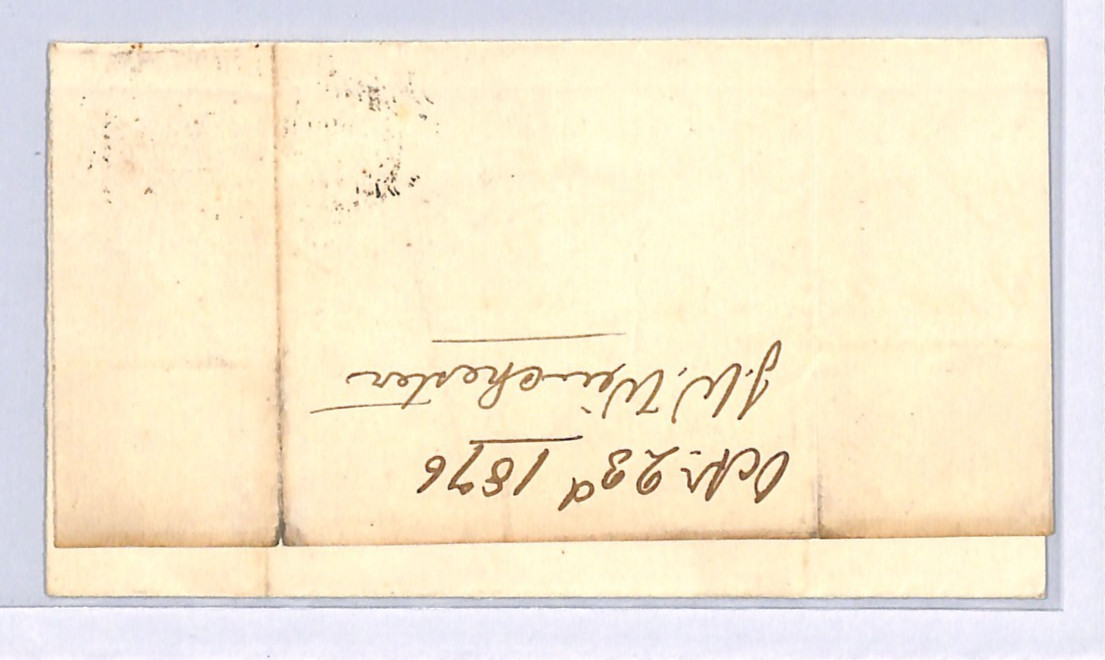 Octr. 23d 1876
J. W. Winchester